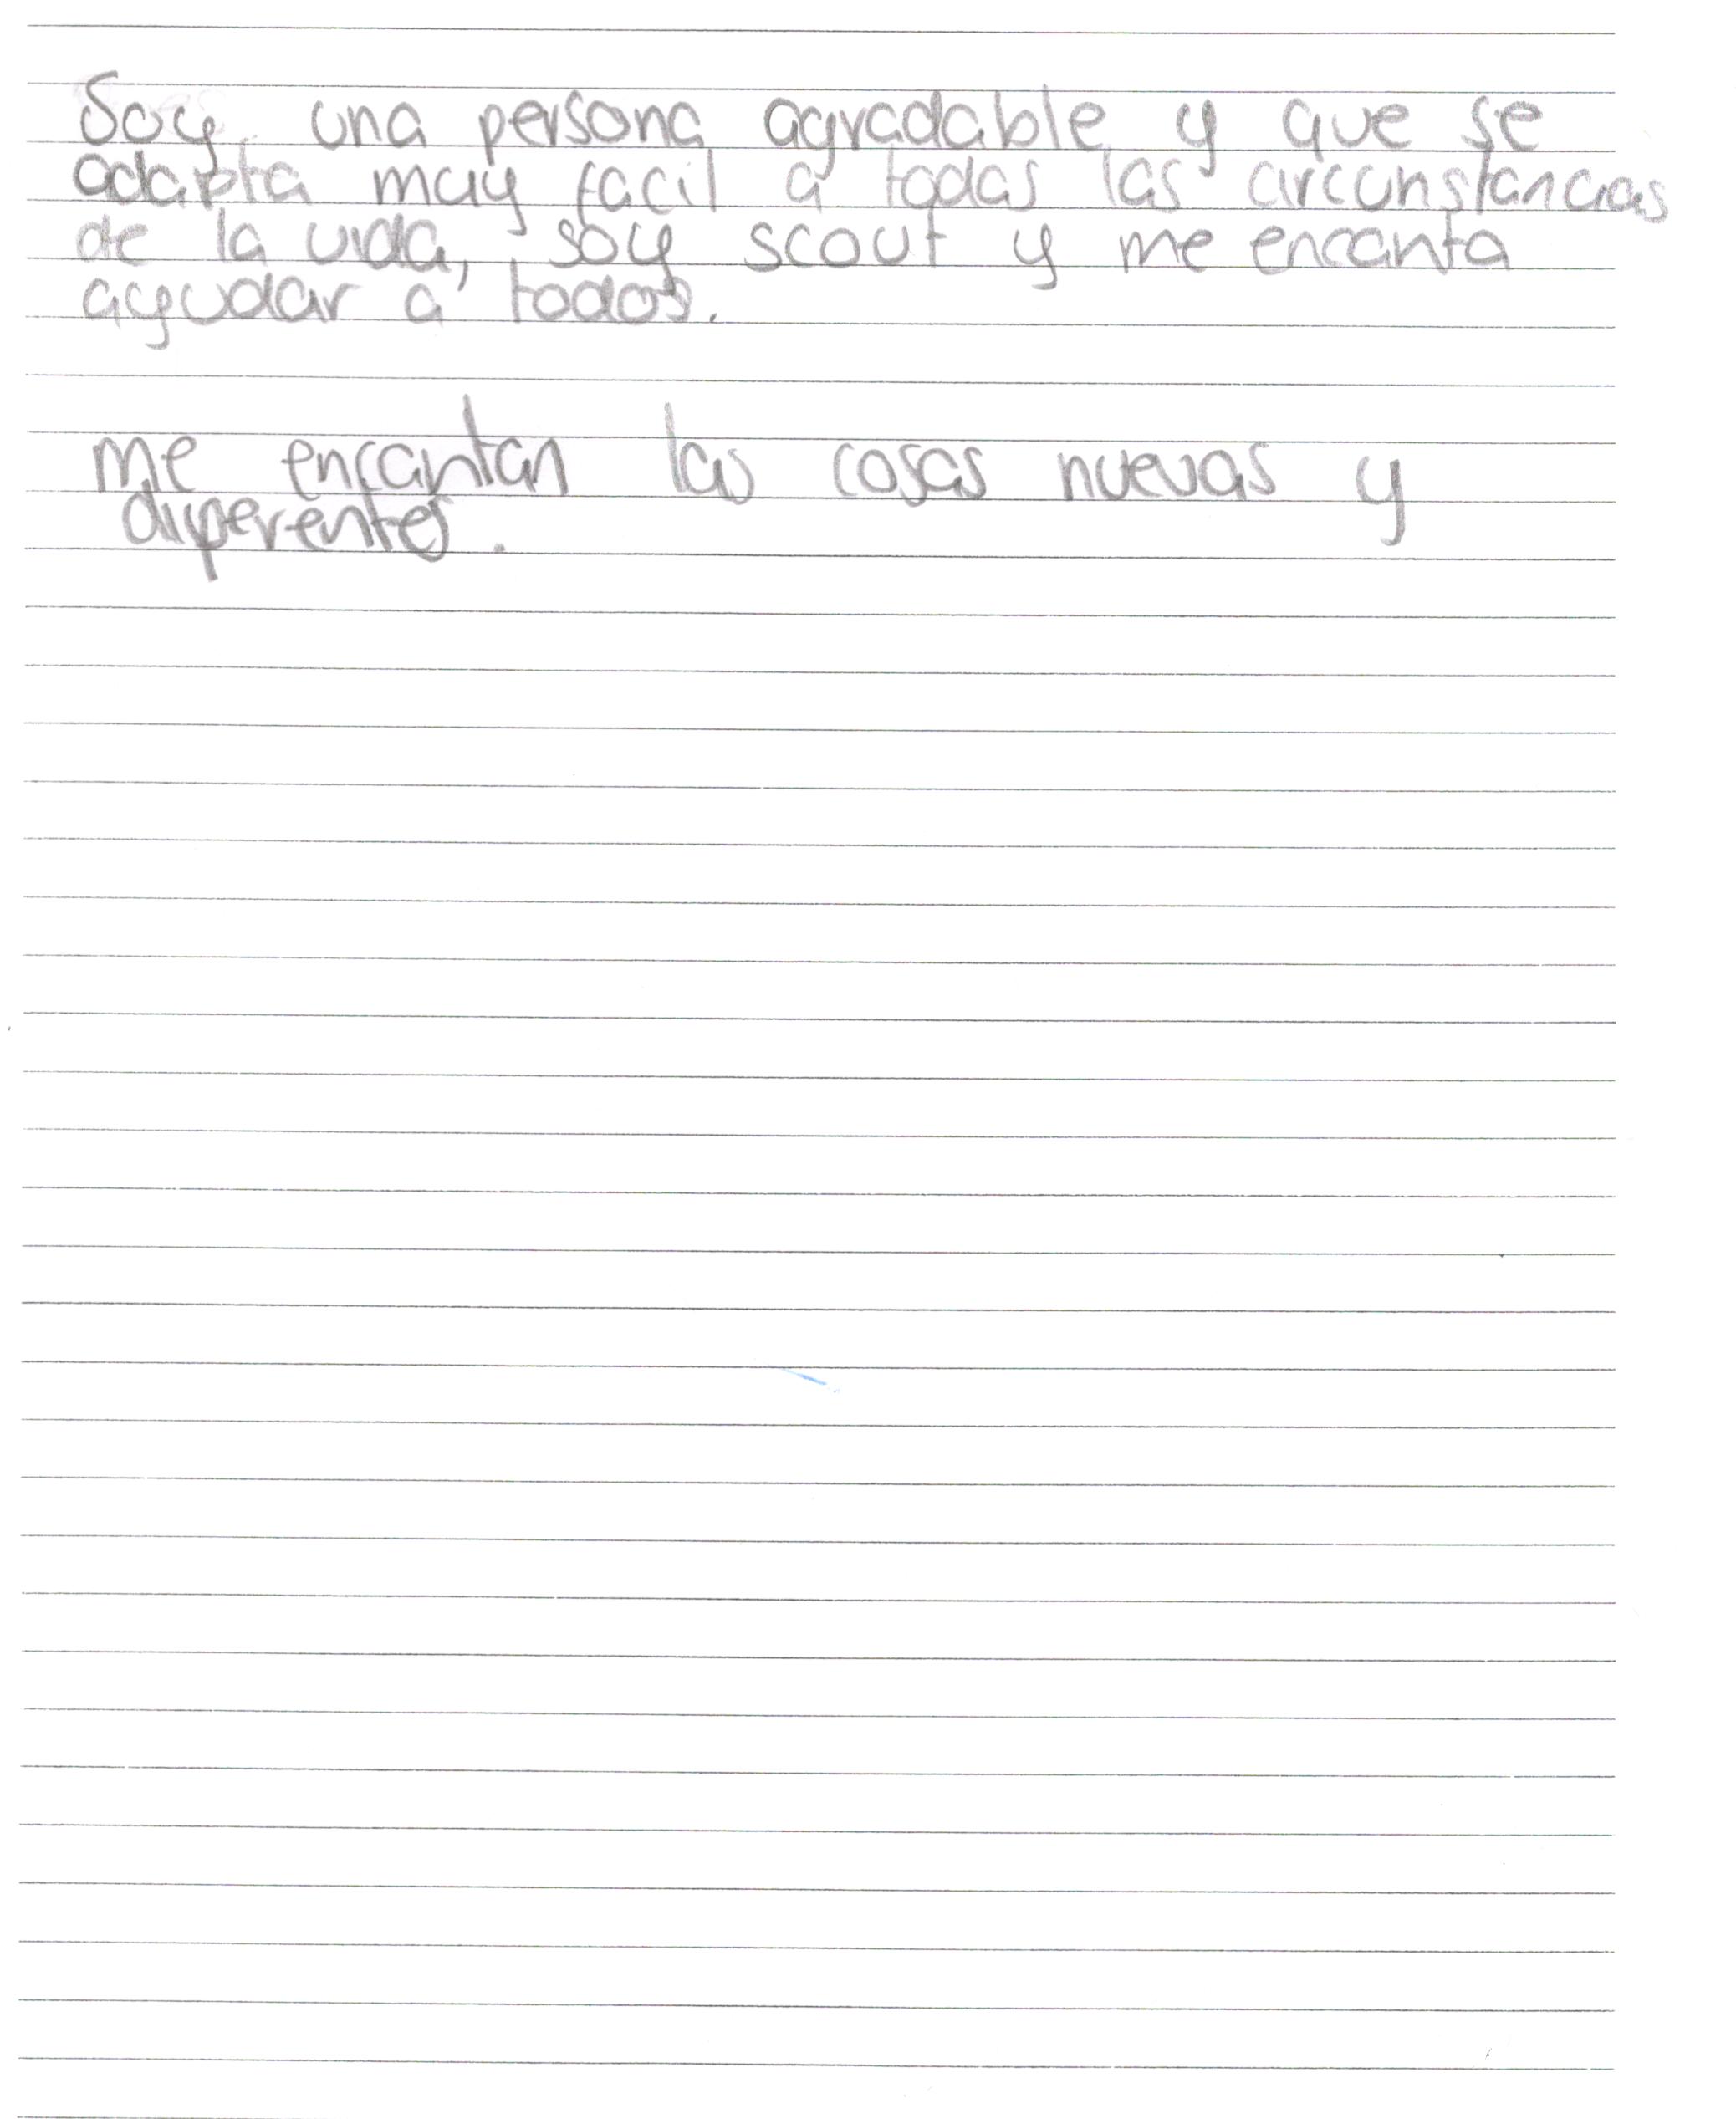 Soy una persona agradable y que se
adapta muy facil a todas las circunstancias
de la vida, soy scout y me encanta
ayudar a todos.
me encantan las cosas nuevas y
diferentes.